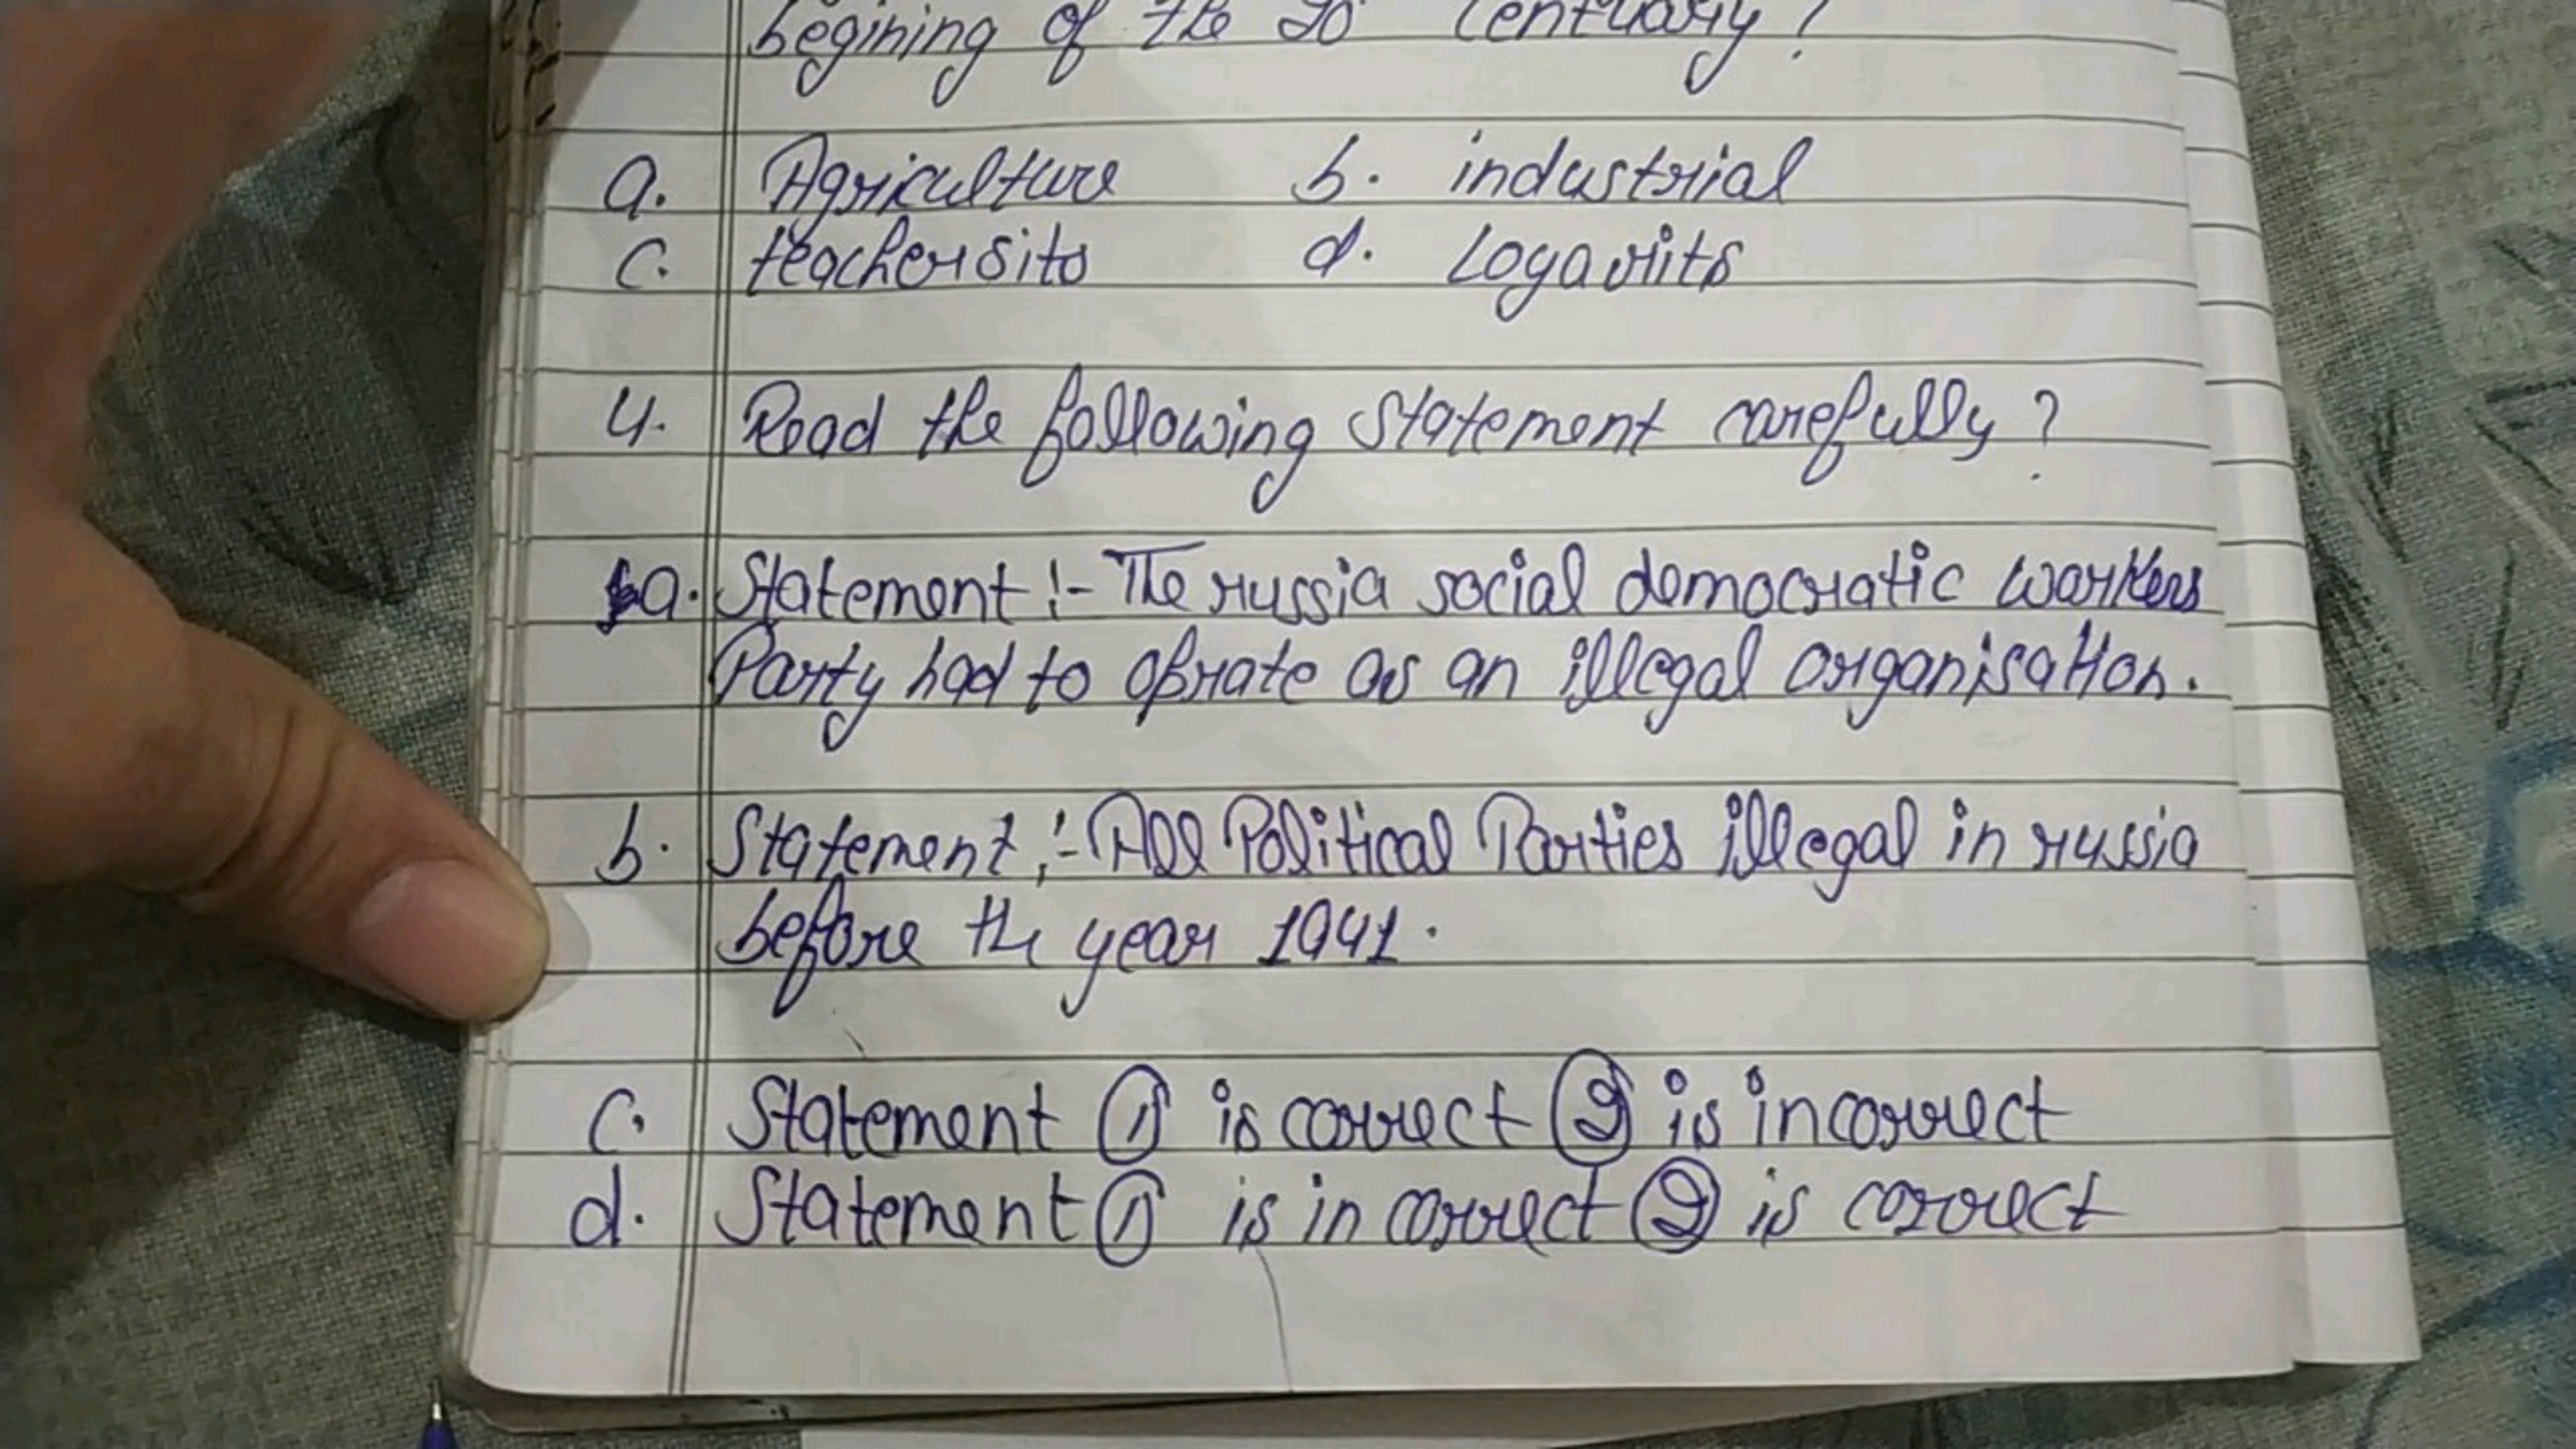 begining of the 20 Centuary?
a. Agriculture b. industrial
c. teachersits d. Logarits
4. Read the following Statement carefully?
a. Statement :- The russia social democratic workers
Party had to oprate as an illegal organisation.
b. Statement :- All Political Parties illegal in russia
before the year 1941.
c. Statement ① is correct ② is incorrect
d. Statement ① is in correct ② is correct